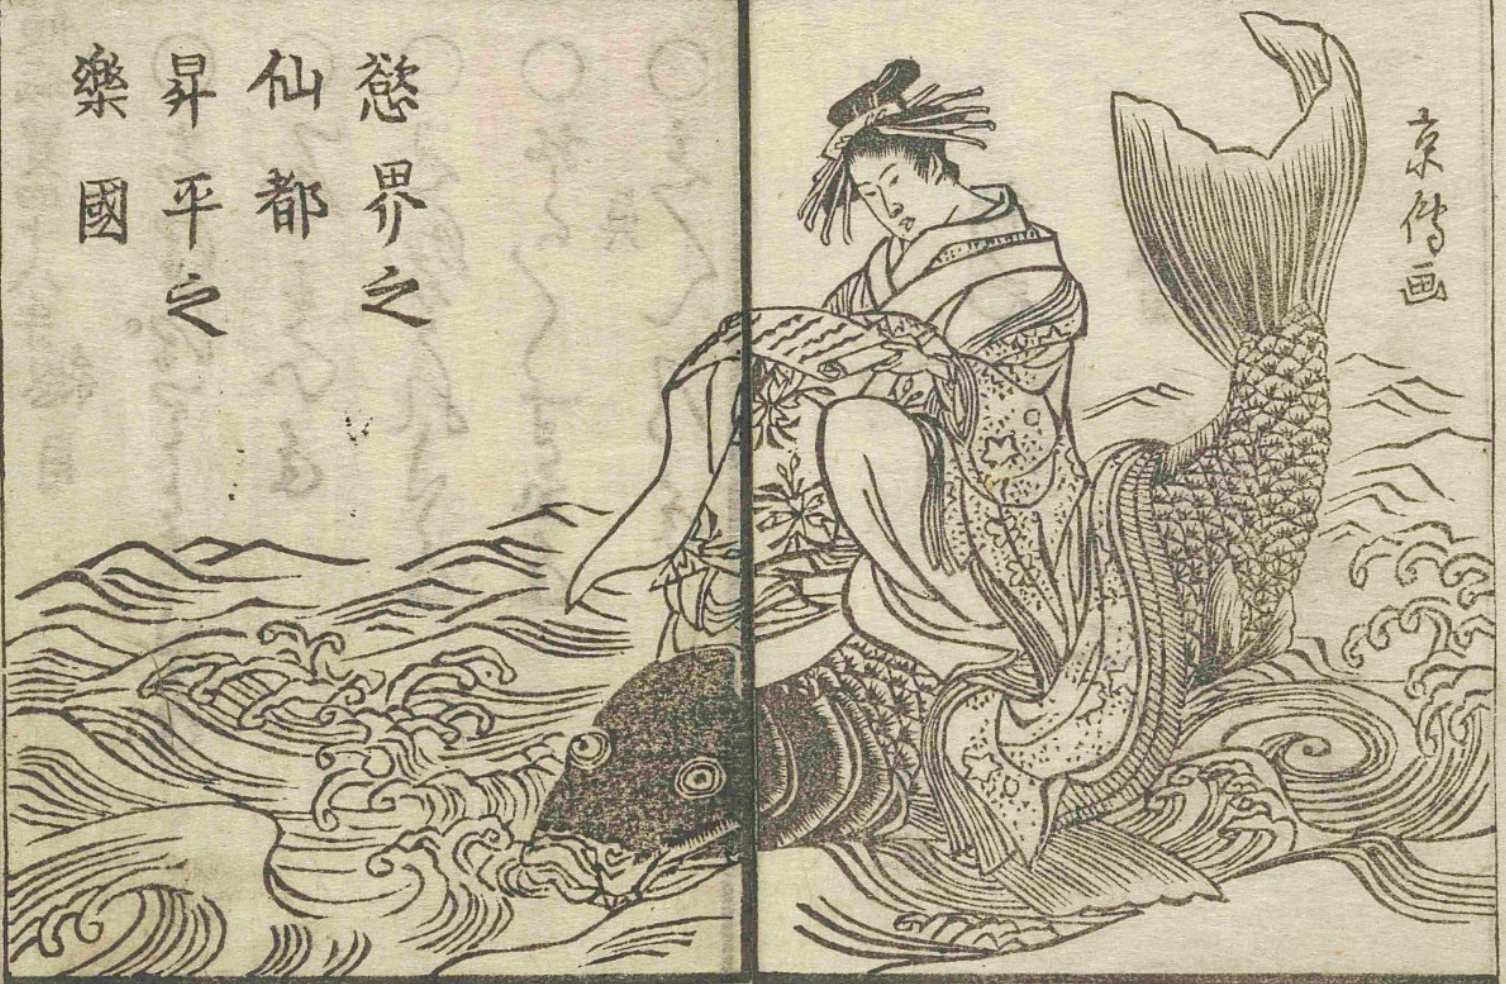 京傳画
慾界之
仙都
昇平之
樂國